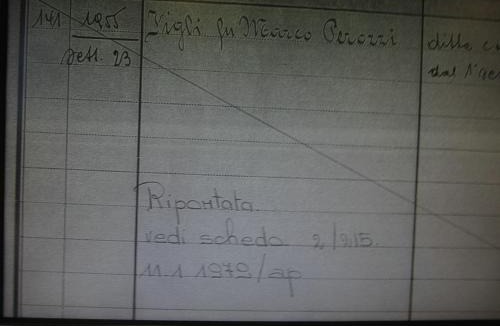 141 1955 Vigli fu Marco Perozzi
Sett. 23 ditta
dal 1°
Riportata.
vedi scheda 2/215.
11.1 1979/ap